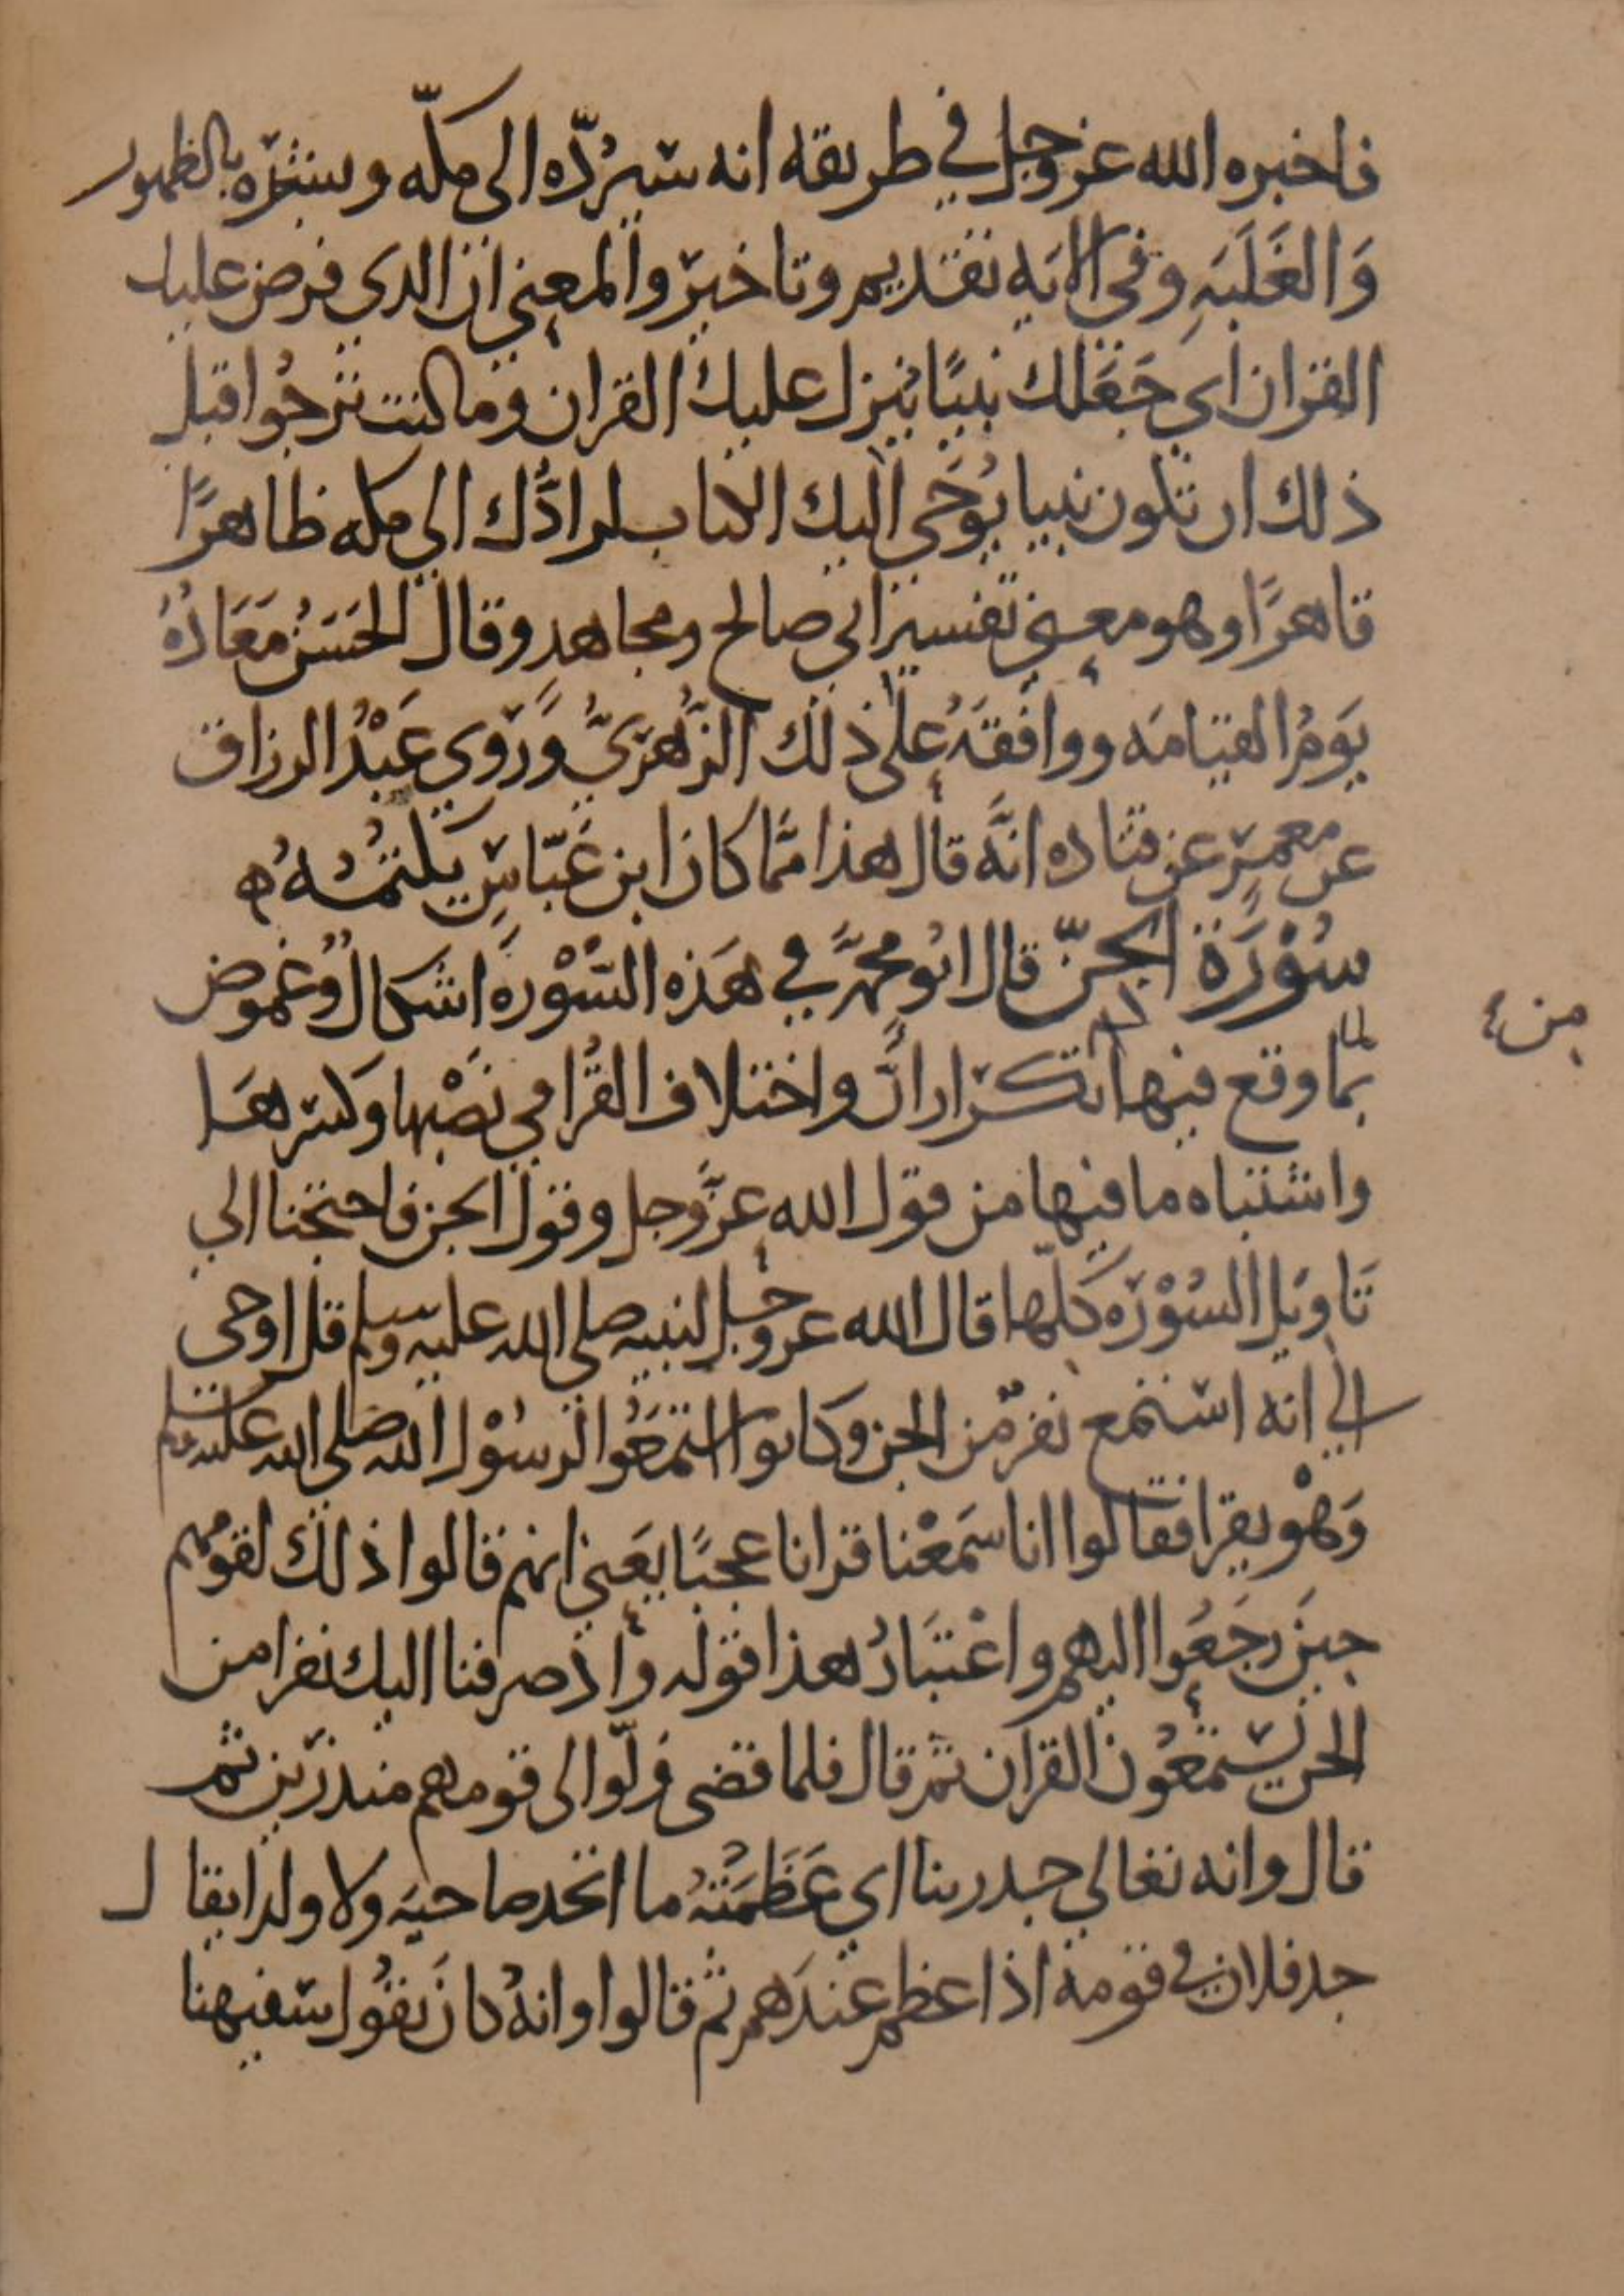 فاخبره الله عز وجل في طريقه انه سيرُدّه الى مكّه وبشّره بالظهور
وَالغَلَبَهِ وفي الايه تقديم وتاخير والمعني ان الدي فرض عليك
القران اي جَعَلك نبيًا ينزل عليك القران وما كنت ترجُوا قبل
ذلك ان تكون نبيا يُوحَي اليك الكتاب لرادُّك الي مكه ظاهرًا
قاهرًا وهو معني تفسير ابي صالح ومجاهد وقال الحَسَنُ مَعَادُهُ
يَومُ القيامَه ووافقَهُ علي ذلك الزُهريُّ وَرَوي عَبْدُ الرزاق
عن معمرٍ عن قتاده انَّه قال هذا ممَّا كان ابن عَبّاسٍ يَكتمُهُ ه
سُوْرَة الجنّ قال ابُو محمَّد في هَذه السُّوْرَه اشكالٌ وغموض
بمَا وقع فيها من تكرار انَّ واختلاف القُرا في نَصْبها وكسرهَا
واشتباه ما فيها من قول الله عزَّ وجل وقول الجن فاحتجنا الي
تَاويل السُوْرَه كلّها قال الله عز وجل لنبيه صلى الله عليه وسلم قل اوحى
الي انه استمع نفر من الجن وكانوا استمَعُوا لرسُوْل الله صَلى الله عليه وسلم
وَهْو يقرا فقالوا انا سَمعْنا قرانا عجبًا يَعني انهم قالوا ذلك لقومهم
حينَ رجَعُوا اليهم واعْتبَارُ هذا قوله واذ صرفنا اليك نفرا من
الجن يسْتمعُون القران ثم قال فلما قضى ولّوا الى قومهم منذرين ثم
قال وانه تعالي جد ربنا اي عَظَمَتُهُ ما اتخد صاحبَه ولا ولدا يقال
جد فلان في قومه اذا عظم عندَهم ثم قالوا وانهُ كانَ يقُول سَفيهنا
لما
من